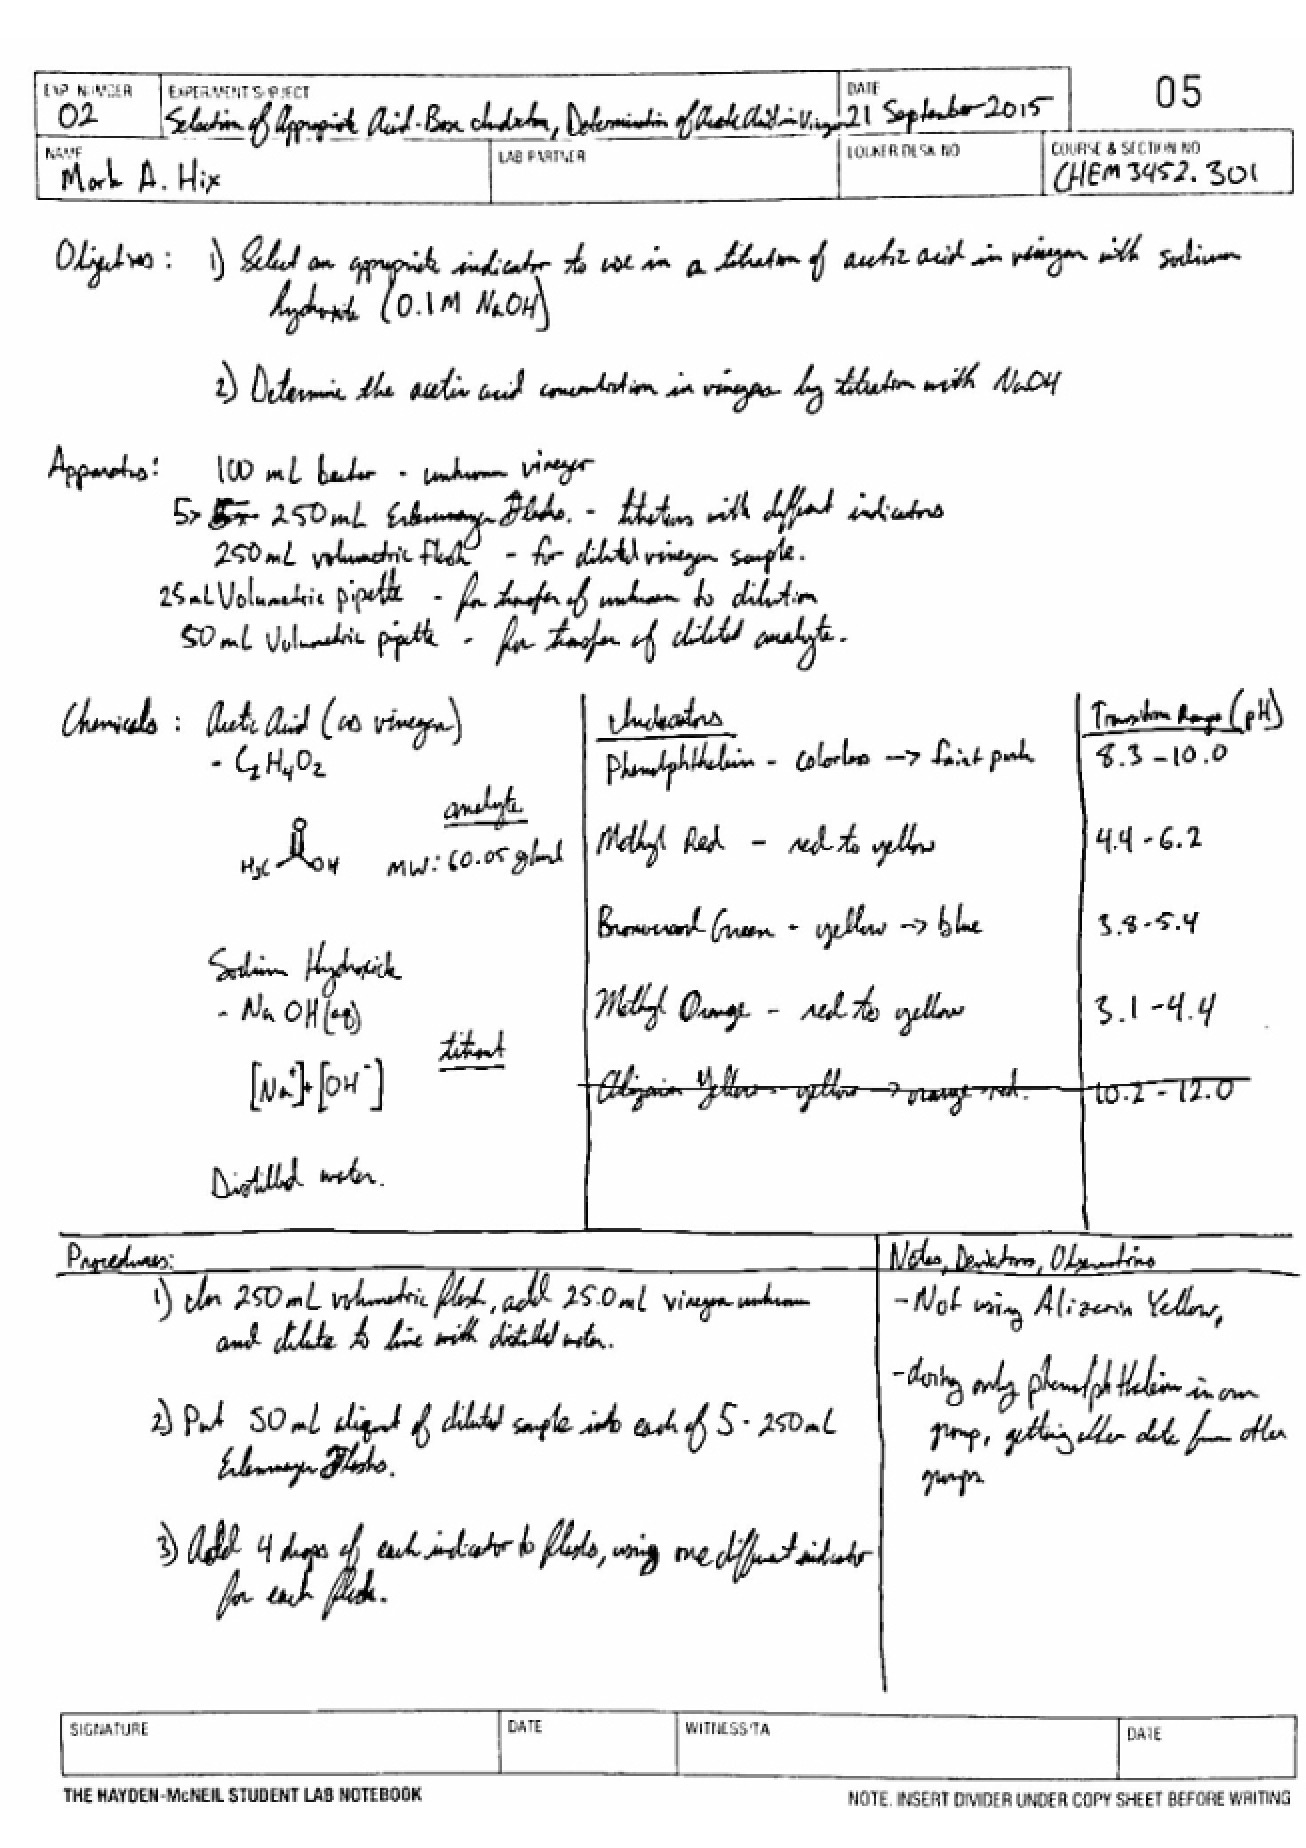 EXP. NUMBER
02
EXPERIMENT/SUBJECT
Selection of Appropriate Acid-Base Indicator, Determination of Acetic Acid in Vinegar
DATE
21 September 2015
05
NAME
Mark A. Hix
LAB PARTNER
LOCKER/DESK NO
COURSE & SECTION NO
CHEM 3452.301
Objectives: 1) Select an appropriate indicator to use in a titration of acetic acid in vinegar with sodium
hydroxide (0.1M NaOH)
2) Determine the acetic acid concentration in vinegar by titration with NaOH
Apparatus: 100 mL beaker - unknown vinegar
5× 250mL Erlenmeyer Flasks. - titrations with different indicators
250mL volumetric flask - for diluted vinegar sample.
25mL Volumetric pipette - for transfer of unknown to dilution
50mL Volumetric pipette - for transfer of diluted analyte.
Chemicals: Acetic Acid (as vinegar)
- C2H4O2
analyte
MW: 60.05 g/mol
H3C OH
Sodium Hydroxide
- NaOH(aq)
titrant
[Na+]+[OH-]
Distilled water.
Indicators Transition Range (pH)
Phenolphthalein - colorless -> faint pink 8.3 - 10.0
Methyl Red - red to yellow 4.4 - 6.2
Bromocresol Green - yellow -> blue 3.8 - 5.4
Methyl Orange - red to yellow 3.1 - 4.4
Alizarin Yellow - yellow -> orange-red. 10.2 - 12.0
Procedures:
1) In 250mL volumetric flask, add 25.0mL vinegar unknown
and dilute to line with distilled water.
2) Put 50 mL aliquot of diluted sample into each of 5 - 250mL
Erlenmeyer Flasks.
3) Add 4 drops of each indicator to flasks, using one different indicator
for each flask.
Notes, Deviations, Observations
- Not using Alizarin Yellow,
- doing only phenolphthalein in our
group, getting other data from other
groups
SIGNATURE
DATE
WITNESS/TA
DATE
THE HAYDEN-McNEIL STUDENT LAB NOTEBOOK
NOTE. INSERT DIVIDER UNDER COPY SHEET BEFORE WRITING